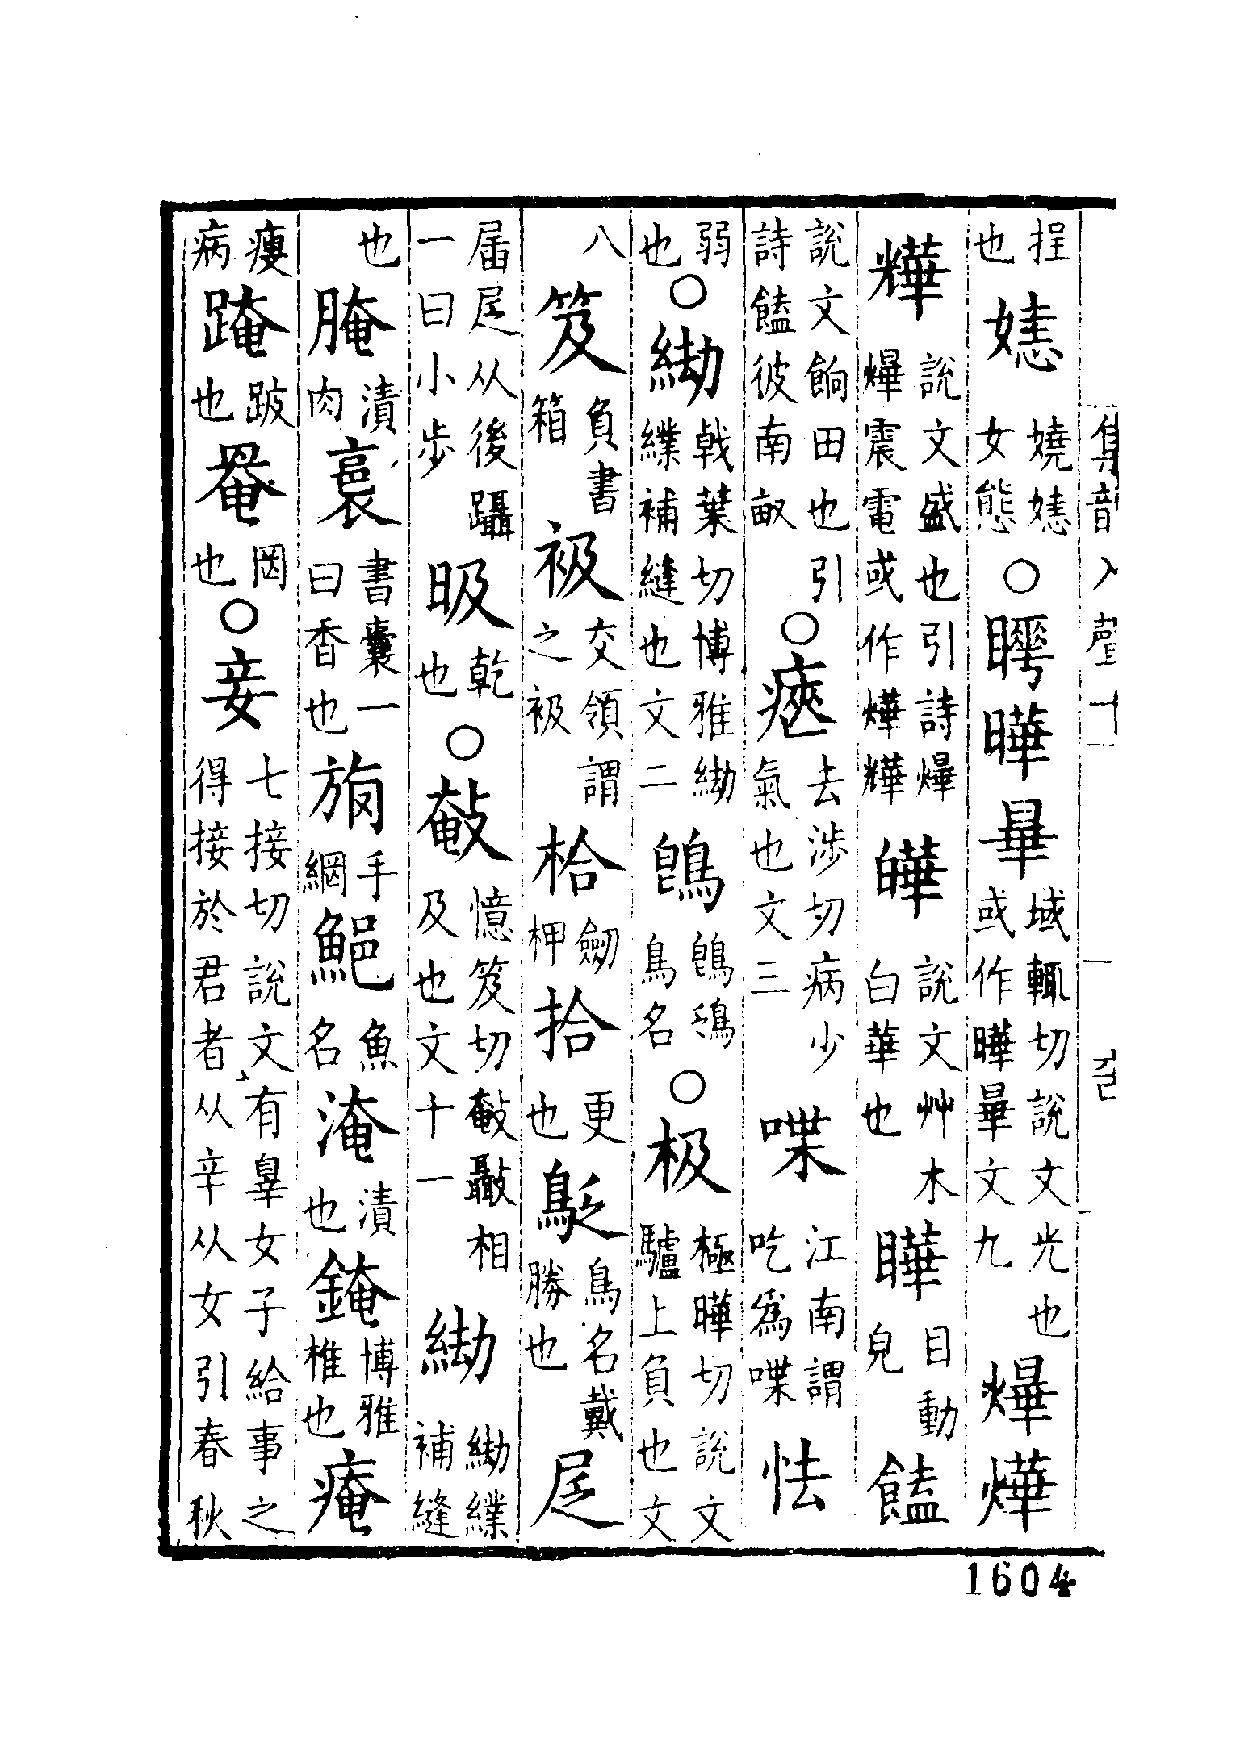 捏也㜓嬈㜓女態○䁱曄㬜域輒切說文光也或作曄㬜文九㷸燁
䊧說文盛也引詩㷸㷸震電或作燁䊧皣說文艸木白華也瞱目動皃饁
說文餉田也引詩饁彼南畝○㾜去涉切病少氣也文三喋江南謂吃爲喋怯
弱也○緆戟葉切博雅緆緤補縫也文二鴖鴖鵶鳥名○极極曄切說文驢上負也文
八笈負書箱衱交領謂之衱袷劒柙拾更也鴔鳥名戴勝也㞋
屇㞋从後躡一曰小步㫺乾也○敮憶笈切敮敱相及也文十一緆緆緤補縫
也腌漬肉裛書囊一曰香也㫋手網䱒魚名淹漬也䤶博雅椎也㾺
瘦病踚跛也罨罔也○妾七接切說文有辠女子給事之得接於君者从辛从女引春秋
集韻入聲十
1604